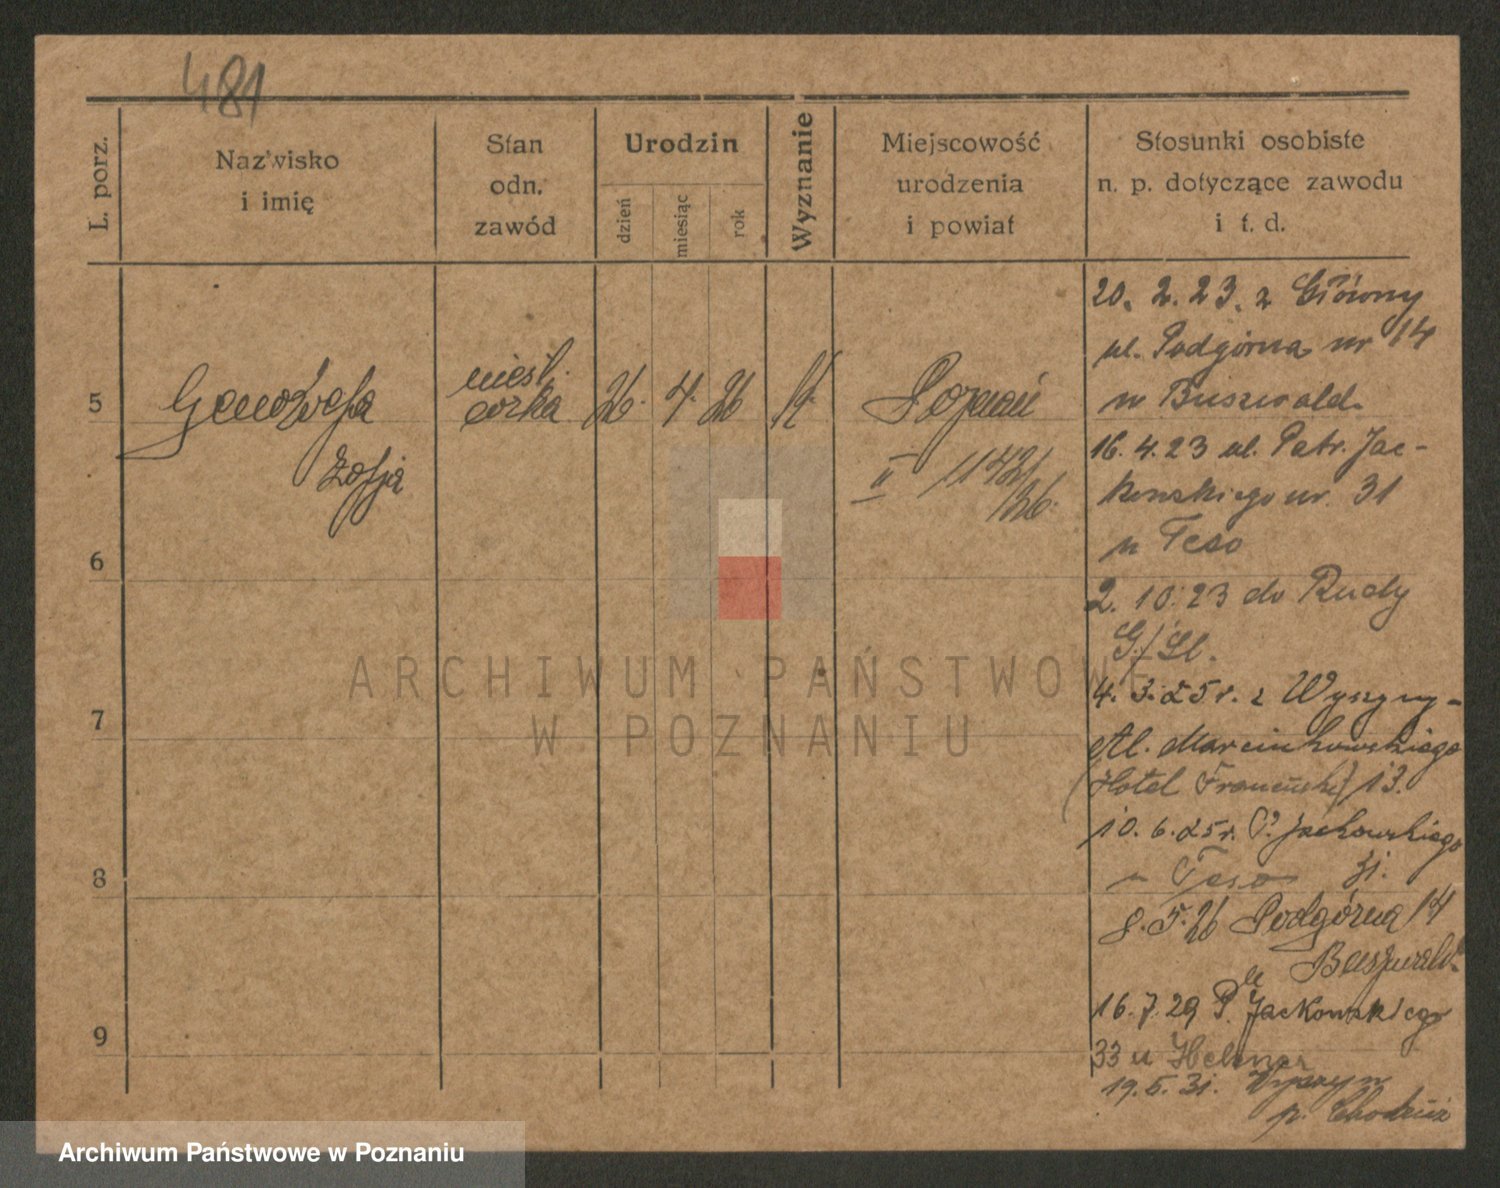 481
L. porz.
Nazwisko
i imię
Stan
odn.
zawód
Urodzin
dzień
miesiąc
rok
Wyznanie
Miejscowość
urodzenia
i powiat
Stosunki osobiste
n. p. dotyczące zawodu
i t. d.
5
Genowefa
Zofja
nieśl.
córka
26. 4. 26
Poznań
II 1142/
/26.
6
7
8
9
20. 2. 23. z Główny
ul. Podgórna nr 14
u Buszwald.
16. 4. 23 ul. Patr. Jac-
kowskiego nr. 31
u Teso
2. 10. 23 do Rudy
G./Śl.
4. 3. 25 r. z Wyszyny-
Al. Marcinkowskiego
(Hotel Francuski) 13.
10. 6. 25 r. P. Jackowskiego
u Teso 31.
8. 5. 26 Podgórna 14
u Buszwald.
16. 7. 29 P. Jackowskiego
33 u
19. 5. 31. Wyszyn
p. Chodzież
ARCHIWUM PAŃSTWOWE
W POZNANIU
Archiwum Państwowe w Poznaniu